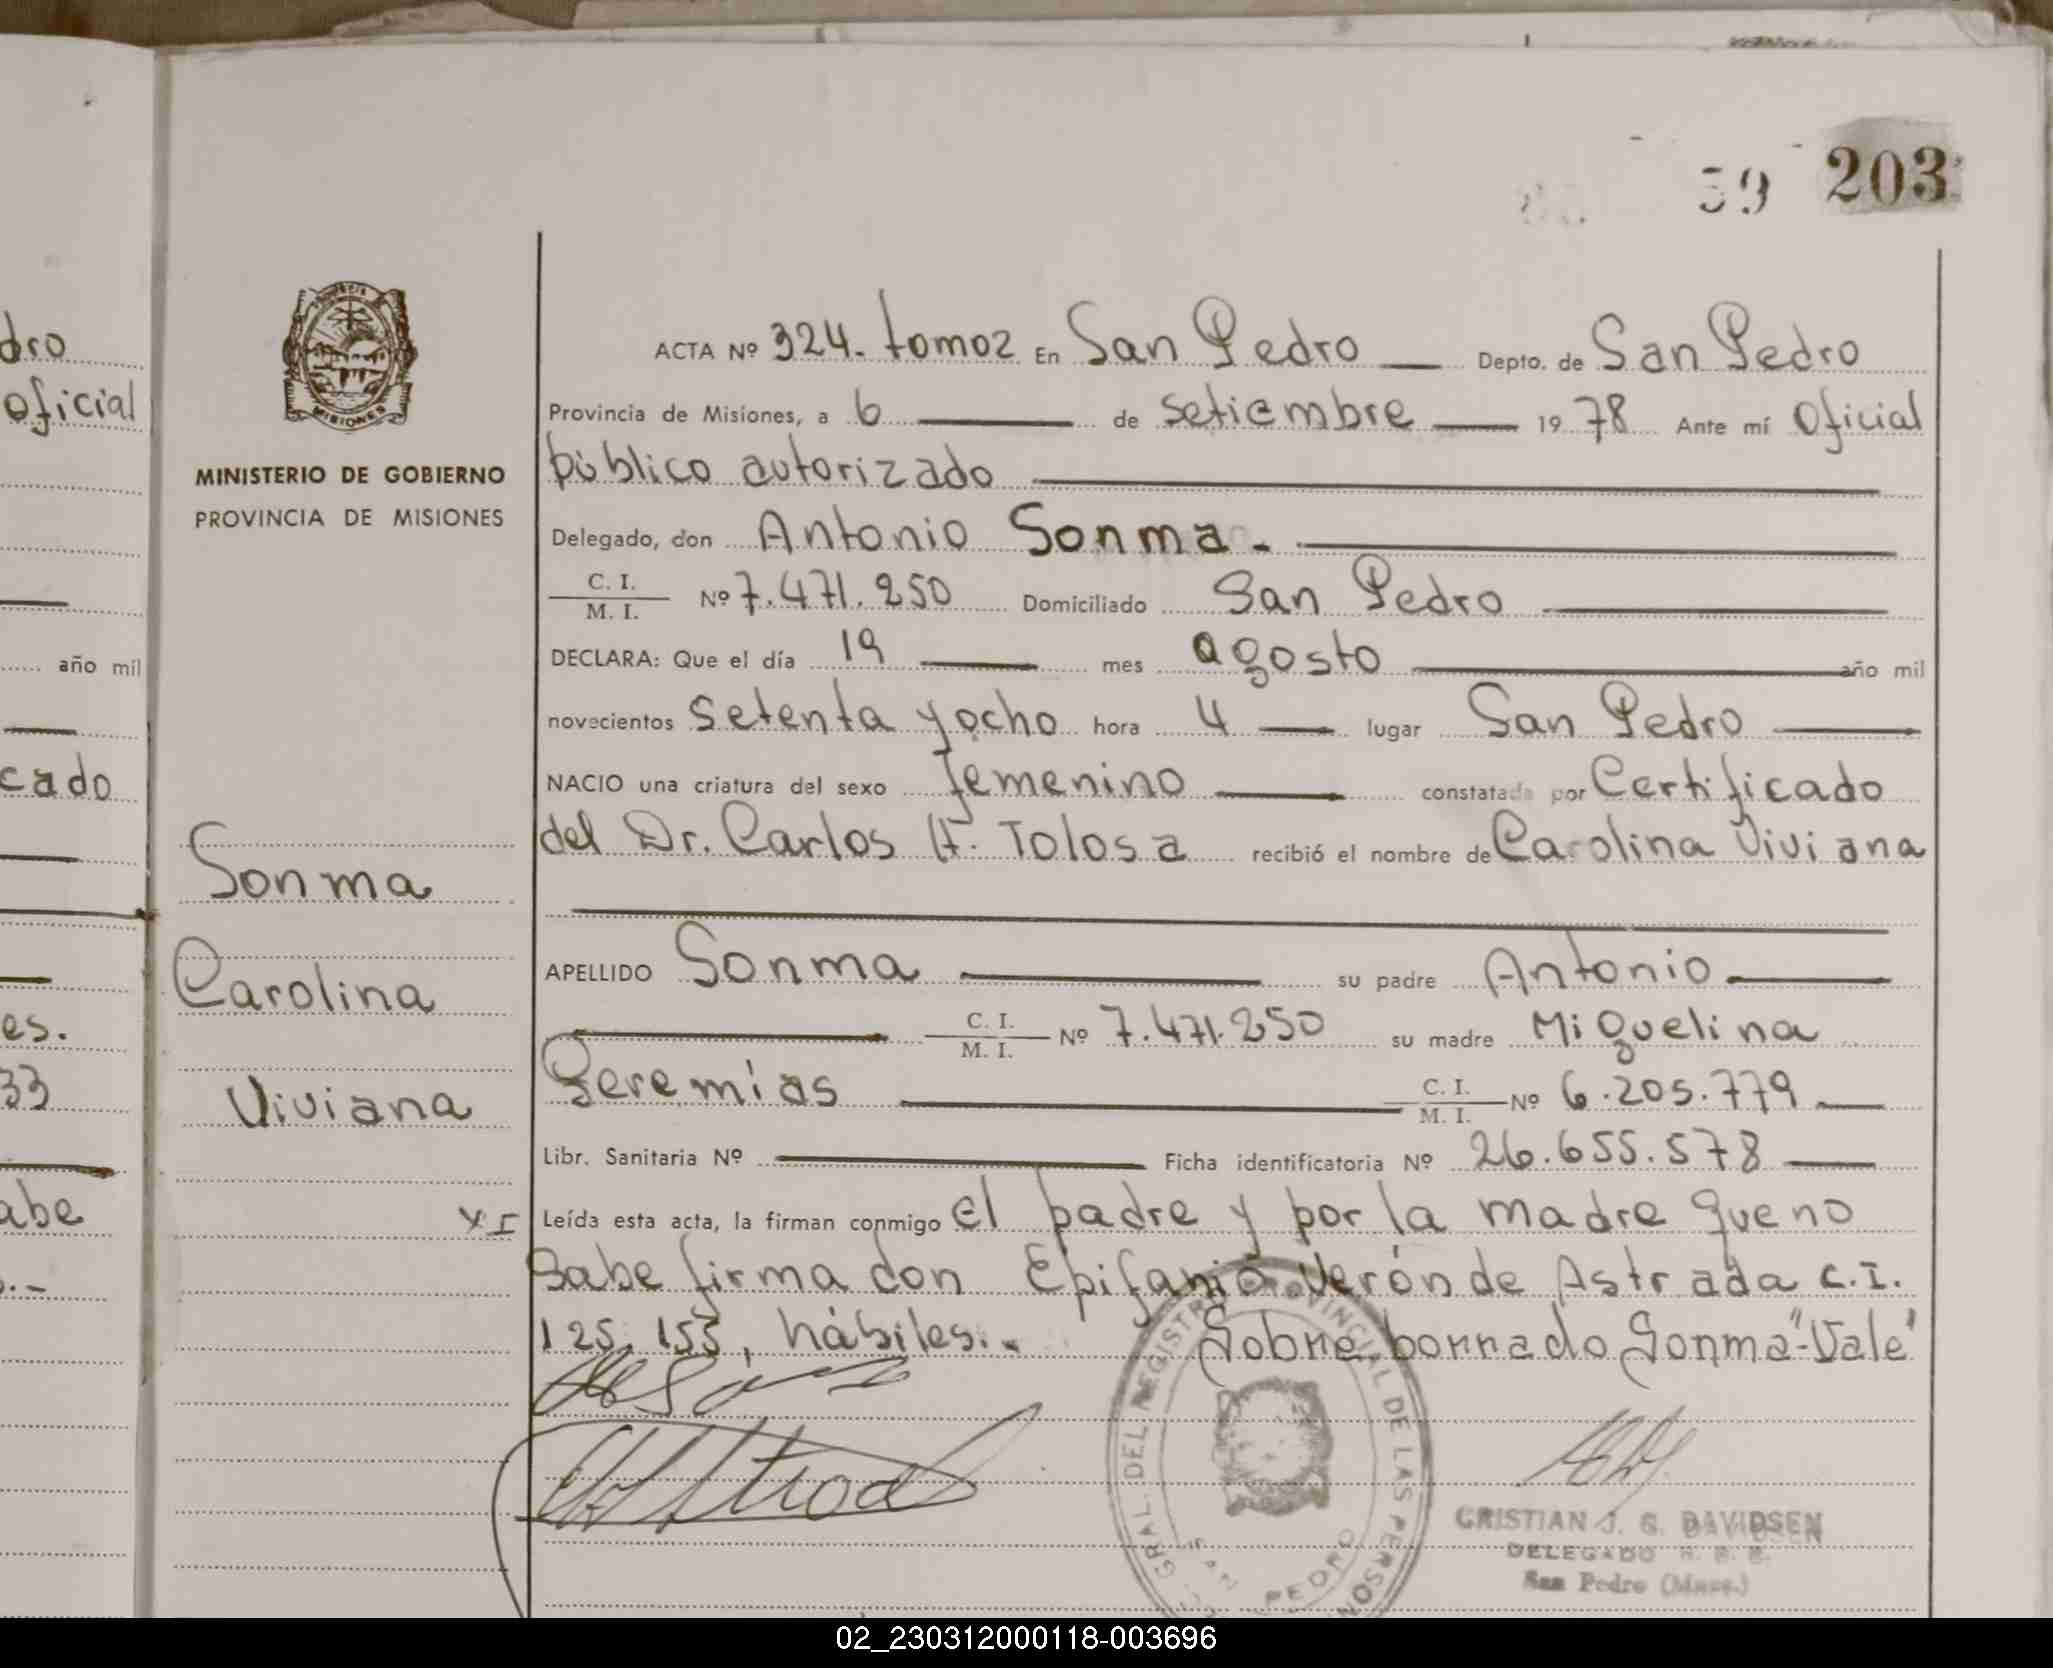 59 203
dro
oficial
año mil
cado
es.
33
abe
MINISTERIO DE GOBIERNO
PROVINCIA DE MISIONES
Sonma
Carolina
Viviana
ACTA Nº 324. tomo 2 En San Pedro Depto. de San Pedro
Provincia de Misiones, a 6 de setiembre 19 78 Ante mí Oficial
público autorizado
Delegado, don Antonio Sonma.
C. I.
M. I. Nº 7.471.250 Domiciliado San Pedro
DECLARA: Que el día 19 mes agosto año mil
novecientos setenta y ocho hora 4 lugar San Pedro
NACIO una criatura del sexo femenino constatada por Certificado
del Dr. Carlos H. Tolosa recibió el nombre de Carolina Viviana
APELLIDO Sonma su padre Antonio
C. I.
M. I. Nº 7.471.250 su madre Miguelina
Geremías C. I.
M. I. Nº 6.205.779
Libr. Sanitaria Nº Ficha identificatoria Nº 26.655.578
Leída esta acta, la firman conmigo el padre y por la madre que no
sabe firma don Epifanio Verón de Astrada C.I.
125.153, hábiles.- Sobre borrado Sonma"-Vale"
GRAL DEL REGISTRO PROVINCIAL DE LAS PERSON
SAN PEDRO
CRISTIAN J. G. DAVIDSEN
DELEGADO
San Pedro (Mnes.)
02_230312000118-003696